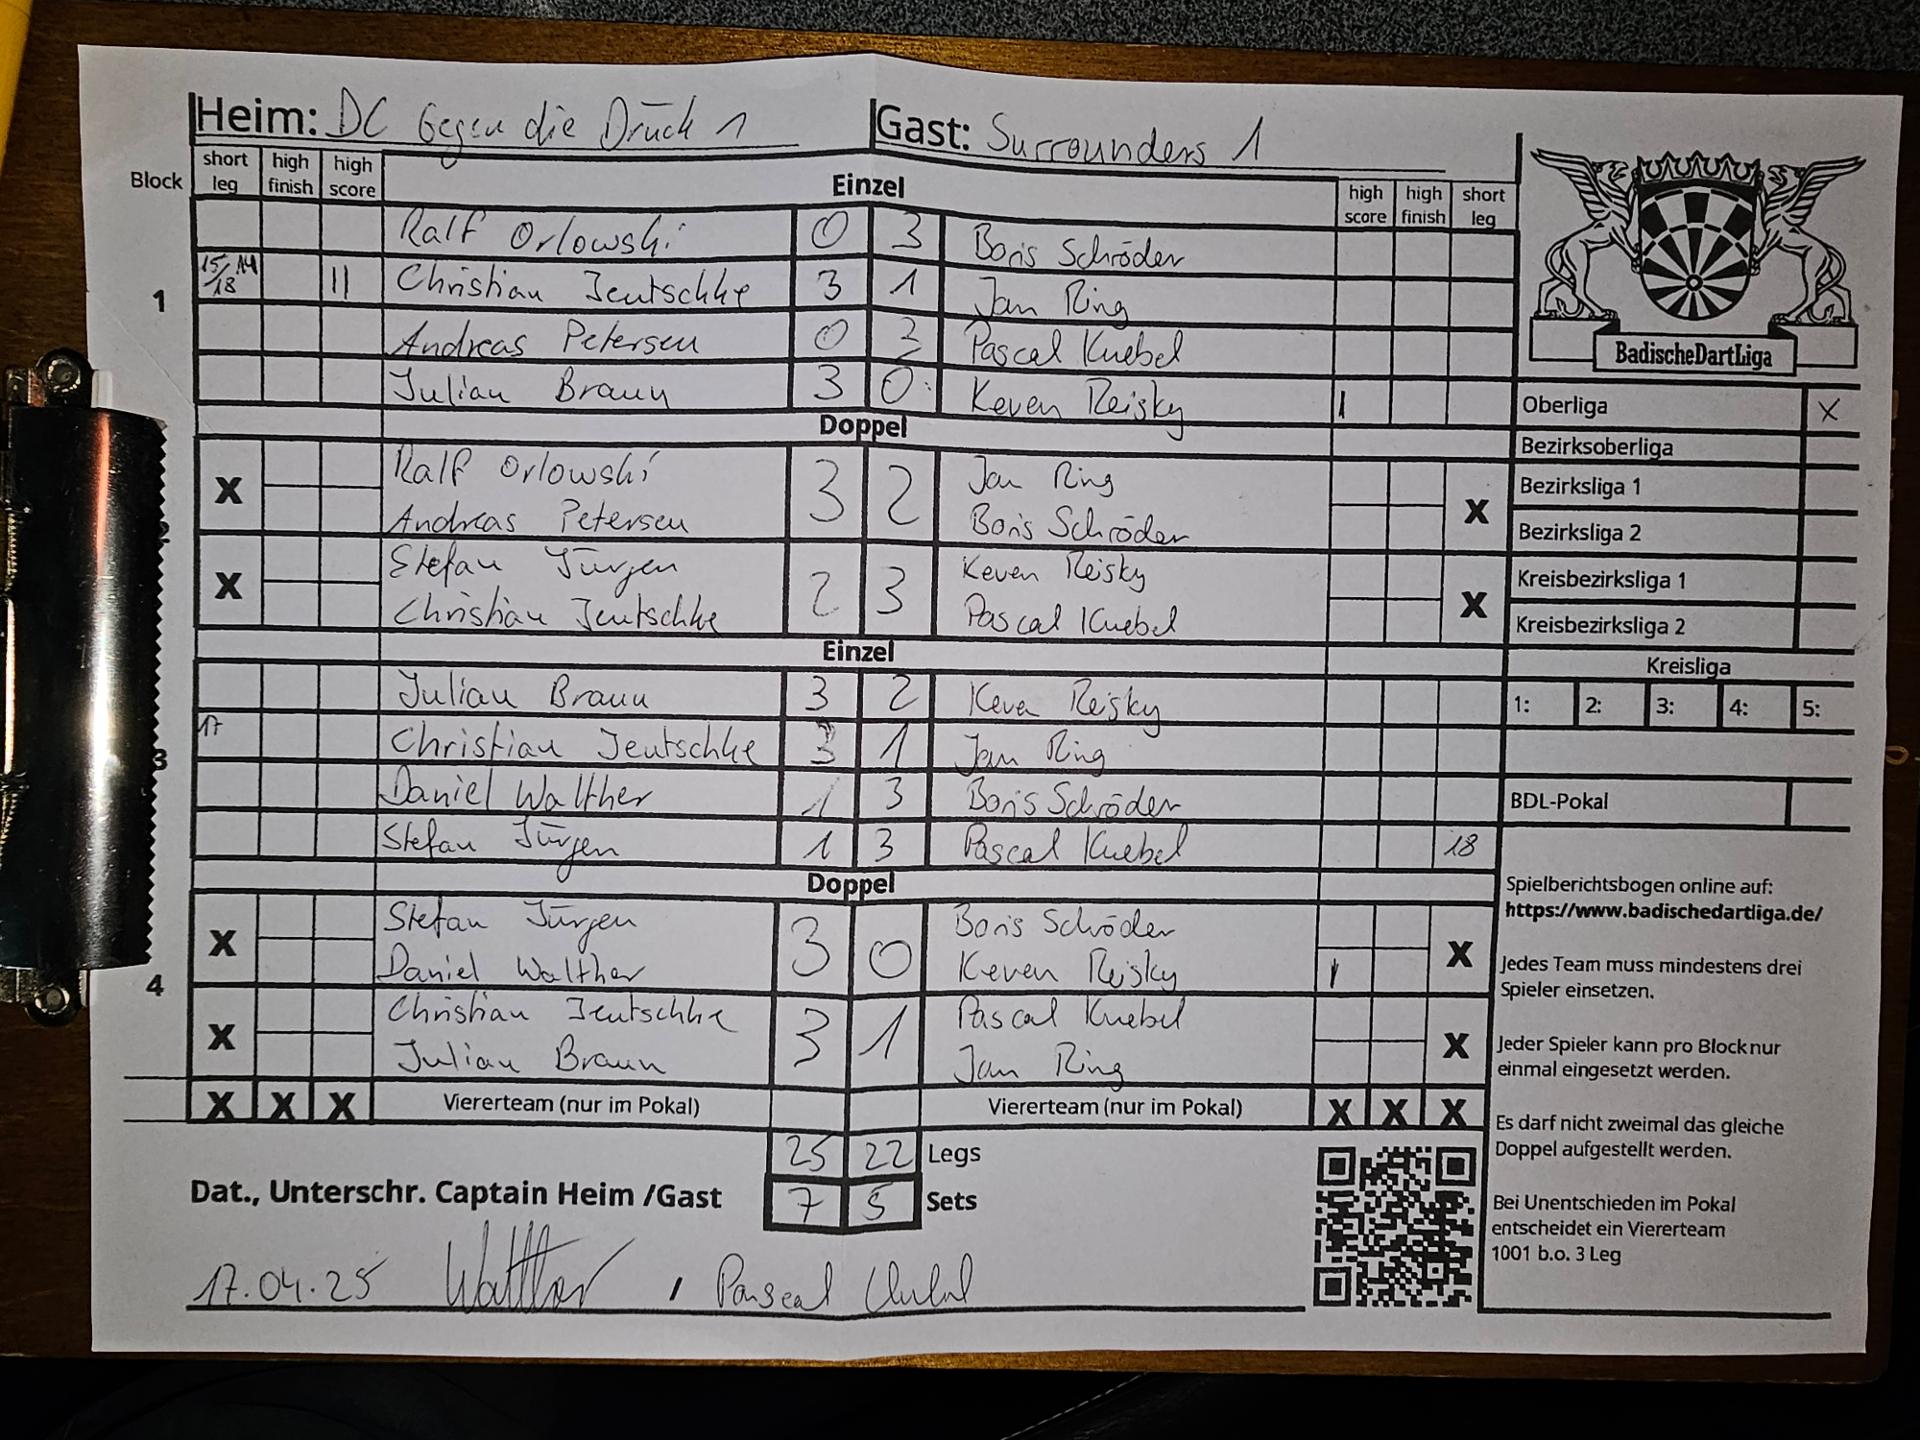 Heim: DC Gegen die Drück 1 Gast: Surrounders 1
Block short leg high finish high score Einzel high score high finish short leg
Ralf Orlowski 0 3 Boris Schröder
1 15/14/18 II Christian Jeutschke 3 1 Jan Ring
Andreas Petersen 0 3 Pascal Knebel
Julian Braun 3 0 Keven Reisky I
Doppel
X Ralf Orlowski 3 2 Jan Ring X
Andreas Petersen Boris Schröder
2
X Stefan Jürgen 2 3 Keven Reisky X
Christian Jeutschke Pascal Knebel
Einzel
Julian Braun 3 2 Keven Reisky
3 17 Christian Jeutschke 3 1 Jan Ring
Daniel Walther 1 3 Boris Schröder
Stefan Jürgen 1 3 Pascal Knebel 18
Doppel
X Stefan Jürgen 3 0 Boris Schröder X
Daniel Walther Keven Reisky I
4
X Christian Jeutschke 3 1 Pascal Knebel X
Julian Braun Jan Ring
X X X Viererteam (nur im Pokal) Viererteam (nur im Pokal) X X X
25 22 Legs
Dat., Unterschr. Captain Heim /Gast 7 5 Sets
17.04.25 Walther / Pascal Knebel
BadischeDartLiga
Oberliga X
Bezirksoberliga
Bezirksliga 1
Bezirksliga 2
Kreisbezirksliga 1
Kreisbezirksliga 2
Kreisliga
1: 2: 3: 4: 5:
BDL-Pokal
Spielberichtsbogen online auf:
https://www.badischedartliga.de/
Jedes Team muss mindestens drei
Spieler einsetzen.
Jeder Spieler kann pro Block nur
einmal eingesetzt werden.
Es darf nicht zweimal das gleiche
Doppel aufgestellt werden.
Bei Unentschieden im Pokal
entscheidet ein Viererteam
1001 b.o. 3 Leg